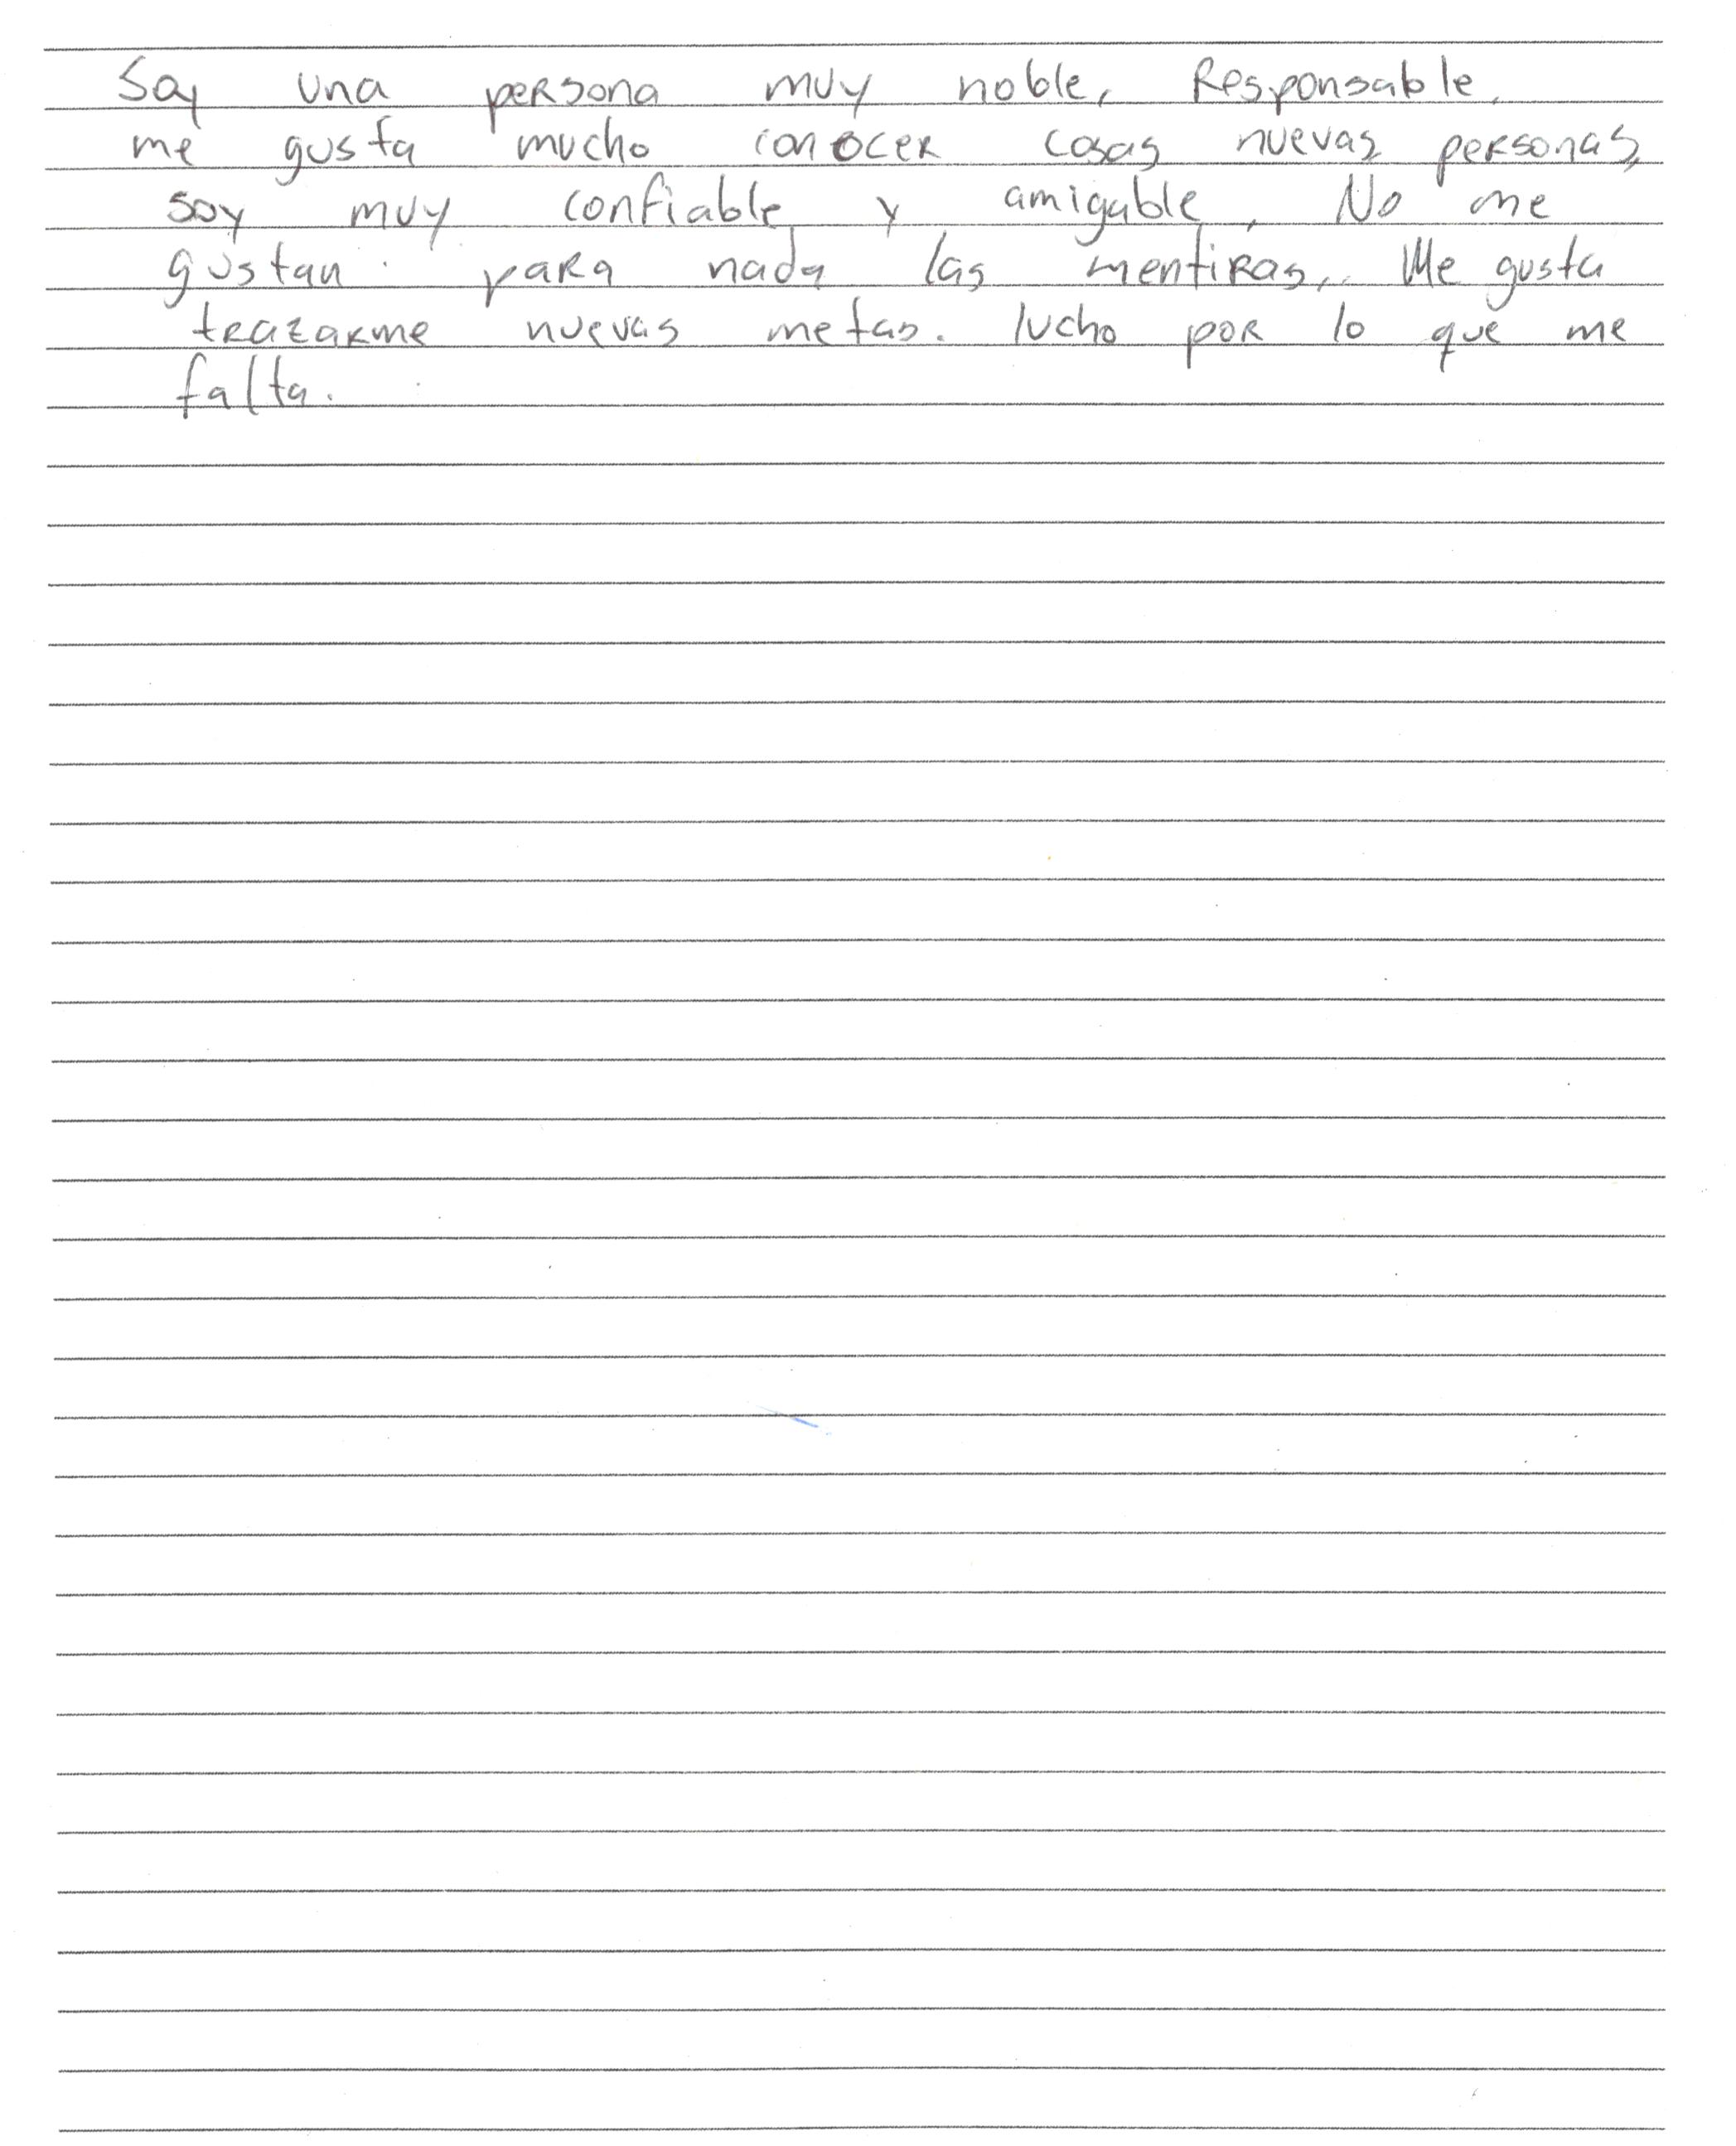 Soy una persona muy noble, Responsable,
me gusta mucho conocer cosas nuevas, personas,
soy muy confiable y amigable, No me
gustan para nada las mentiras,. Me gusta
trazarme nuevas metas. lucho por lo que me
falta.